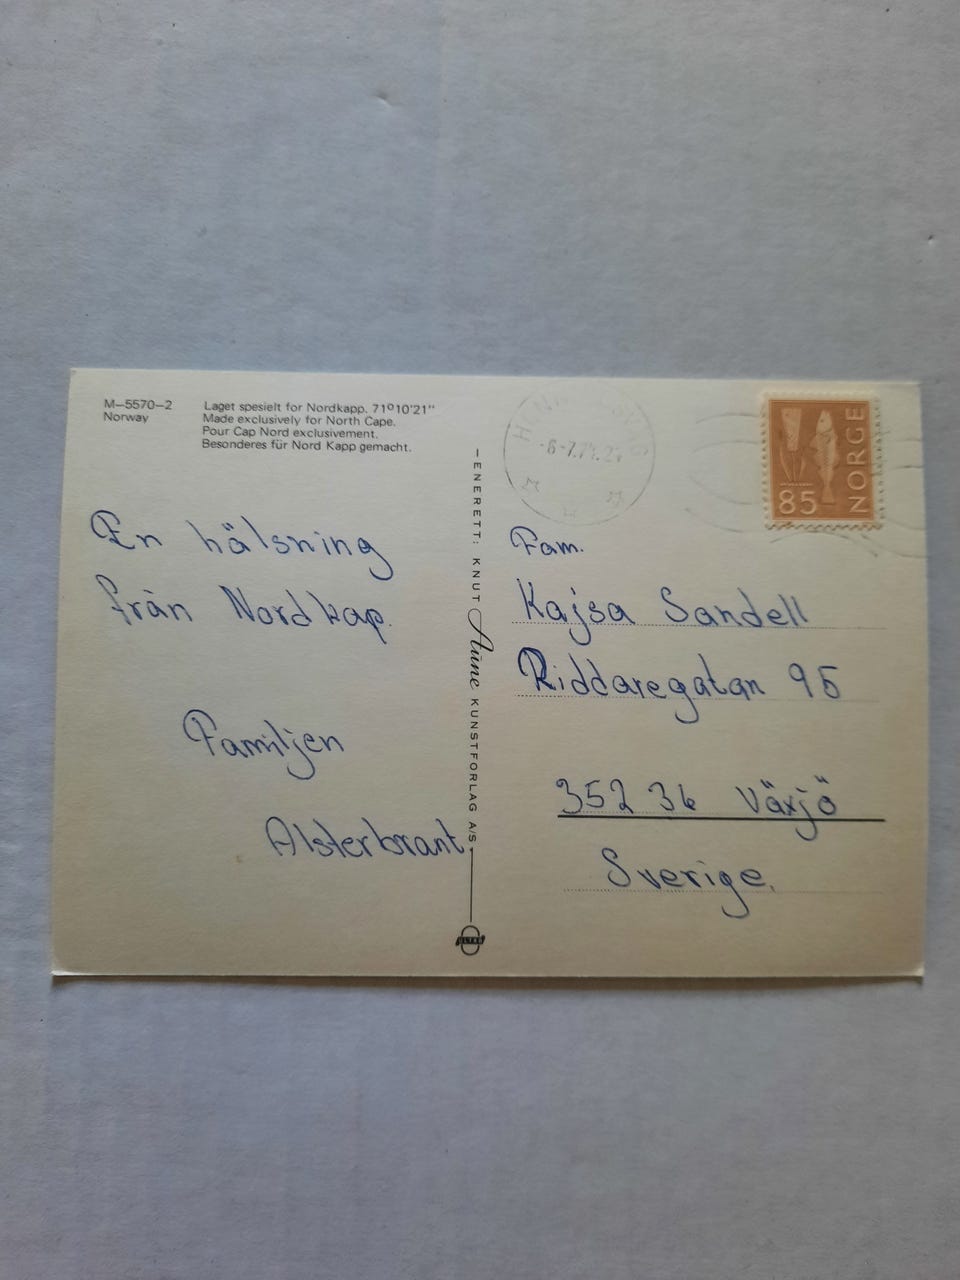 M—5570—2
Norway
Laget spesielt for Nordkapp. 71°10'21"
Made exclusively for North Cape.
Pour Cap Nord exclusivement.
Besonderes für Nord Kapp gemacht.
En hälsning
från Nordkap.
Familjen
Alsterbrant.
—ENERETT: KNUT Aune KUNSTFORLAG A/S
ULTRA
85
NORGE
Fam.
Kajsa Sandell
Riddaregatan 95
352 36 Växjö
Sverige.